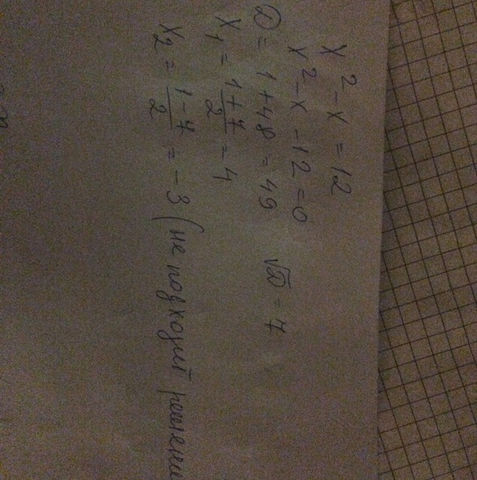 x² - x = 12
x² - x - 12 = 0
D = 1 + 48 = 49 √D = 7
x₁ = (1 + 7)/2 = 4
x₂ = (1 - 7)/2 = -3 (не подходит